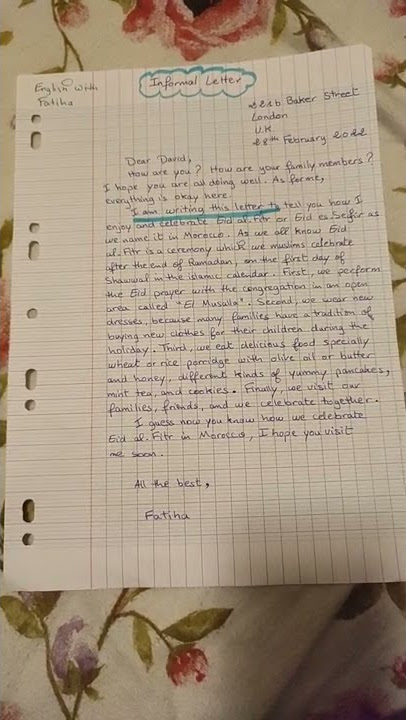 English with
Fatiha
Informal Letter
221b Baker Street
London
U.K
28th February 2022
Dear David,
How are you? How are your family members?
I hope you are all doing well. As for me,
everything is okay here.
I am writing this letter to tell you how I
enjoy and celebrate Eid al. Fitr or Eid es. Seġir as
we name it in Morocco. As we all know Eid
al. Fitr is a ceremony which we muslims celebrate
after the end of Ramadan, on the first day of
Shawwal in the islamic calendar. First, we perform
the Eid prayer with the congregation in an open
area called "El Musalla". Second, we wear new
dresses, because many families have a tradition of
buying new clothes for their children during the
holiday. Third, we eat delicious food specially
wheat or rice porridge with olive oil or butter
and honey, different kinds of yummy pancakes,
mint tea, and cookies. Finally, we visit our
families, friends, and we celebrate together.
I guess now you know how we celebrate
Eid al. Fitr in Morocco, I hope you visit
me soon.
All the best,
Fatiha